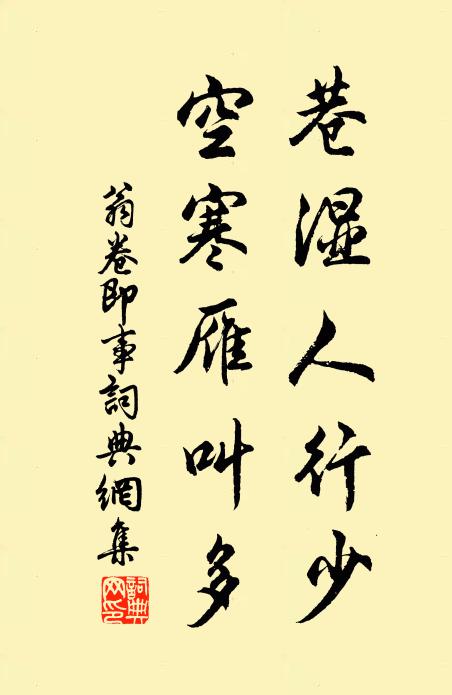 巷湿人行少
空寒雁叫多
翁卷即事詞典網集
詞典網印